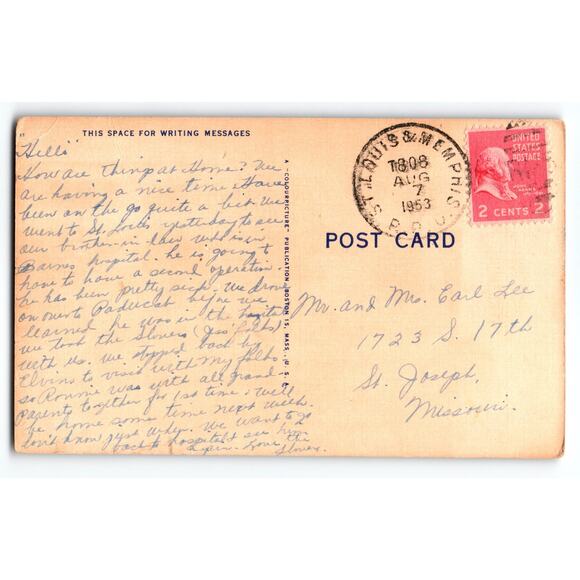 THIS SPACE FOR WRITING MESSAGES
"Hello"
How are things at Home? We
are having a nice time. Have
been on the go quite a bit. We
went to St. Louis yesterday to see
our brother-in law who is in
Barnes hospital. he is going to
have to have a second operation.
he has been pretty sick. We drove
on over to Paducah before we
learned he was in the hospital
we took the Slovers (Jess' folks)
with us. We stopped back by
Elvins to visit with my folks
so Ronnie was with all grand-
parents together for 1st time. Will
be home some time next week.
don't know just when. We want to go
back to hospital & see him
again. Love, The
Slovers.
A "COLOURPICTURE" PUBLICATION BOSTON 15, MASS., U.S.A.
ST. LOUIS & MEMPHIS
T808
AUG
7
1953
R.P.O.
UNITED
STATES
POSTAGE
JOHN ADAMS
2 CENTS 2
POST CARD
Mr. and Mrs. Earl Lee
1723 S. 17th
St. Joseph,
Missouri.